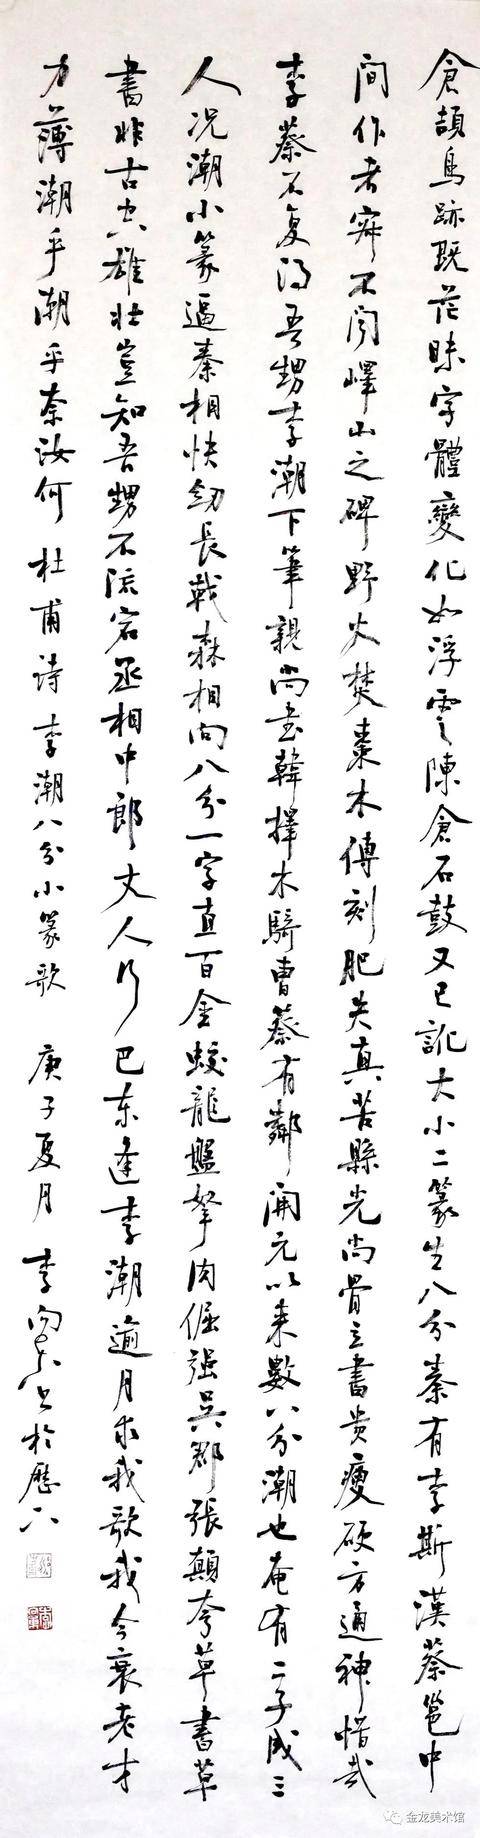 倉頡鳥跡既茫昧字體變化如浮雲陳倉石鼓又已訛大小二篆生八分秦有李斯漢蔡邕中
間作者寂不聞嶧山之碑野火焚棗木傳刻肥失真苦縣光尚骨立書貴瘦硬方通神惜哉
李蔡不復得吾甥李潮下筆親尚書韓擇木騎曹蔡有鄰開元以來數八分潮也奄有二子成三
人況潮小篆逼秦相快劍長戟森相向八分一字直百金蛟龍盤拏肉倔强吳郡張顛夸草書草
書非古空雄壯豈知吾甥不流宕丞相中郎丈人行巴东逢李潮逾月求我歌我今衰老才
力薄潮乎潮乎奈汝何 杜甫诗 李潮八分小篆歌 庚子夏月 李向东书於歷下
金龙美术馆